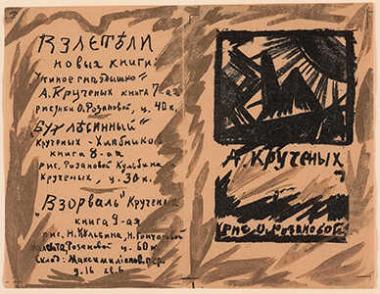 ВЗЛЕТѢЛИ
новыя книги:
„Утиное гнѣздышко"
А. Крученых книга 7-ая
рисунки О. Розановой, ц. 40 к.
Бух лѣсинный"
Крученых - Хлѣбников
книга 8-ая
рис. Розановой Кульбина
Крученых, ц. 30 к.
„Взорваль" Крученых
книга 9-ая
рис. Н. Кульбина, Н. Гончаровой
Розановой ц. 60 к.
Склад: Максимилiанов. пер.
д. 16 кв. 6
А. Крученых
рис О. Розановой